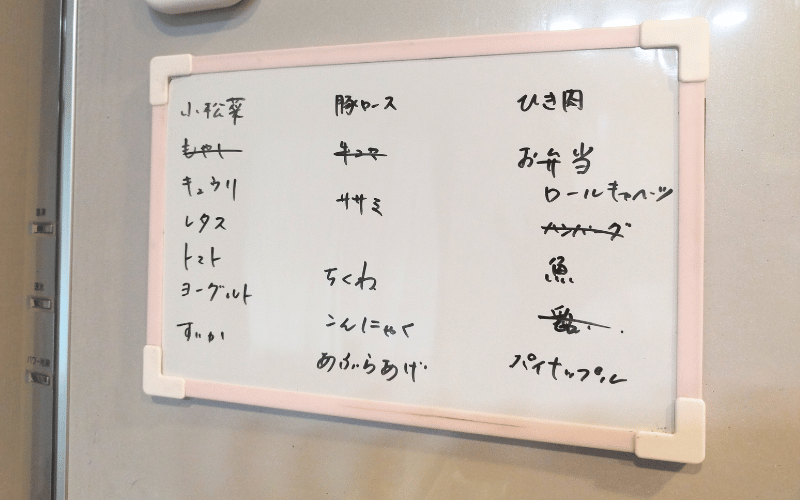 小松菜
もやし
キュウリ
レタス
トマト
ヨーグルト
すいか
豚ロース
ササミ
ちくわ
こんにゃく
あぶらあげ
ひき肉
お弁当
ロールキャベツ
ハンバーグ
魚
パイナップル